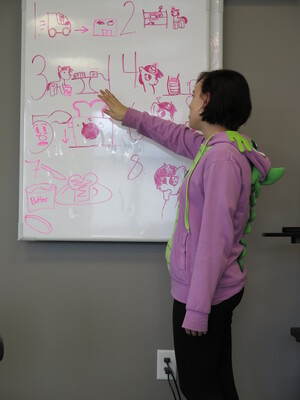 1 2
3 4
5
7 8
Butter